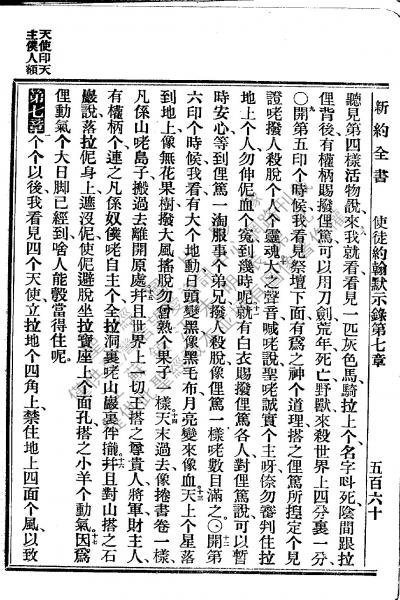 新約全書 使徒約翰默示錄第七章 五百六十
聽見第四樣活物說、來我就看看見一匹灰色馬騎拉上个、名字叫死、陰間跟拉
俚背後有權柄賜撥俚篤可以用刀劍荒年死亡野獸來殺世界上四分裏一分、
〇九開第五印个時候我看見祭壇下面有爲之神个道理搭之俚篤所揑定个見
證咾撥人殺脫个人个靈魂大之聲音喊咾說聖咾誠實个主呀倷勿審判住拉
地上个人勿伸伲血个寃到幾時呢就有白衣賜撥俚篤各人對俚篤說可以暫
時安心等到俚篤一淘服事个弟兄撥人殺脫像俚篤一樣咾數目滿之〇開第
六印个時候我看有大个地動日頭變黑像黑毛布月亮變來像血十三天上个星落
到地上像無花果樹撥大風搖脫勿曾熟个果子一樣十四天末過去像捲書卷一樣、
凡係山咾島子搬過去離開原處十五幷且世界上一切王搭之尊貴人將軍財主人
有權柄个連之凡係奴僕咾自主个全拉洞裏咾山巖裏伴攏十六幷且對山搭之石
巖說落拉伲身上遮沒伲使伲避脫坐拉寶座上个面孔搭之小羊个動氣十七因爲
俚動氣个大日脚已經到啥人能彀當得住呢。
第七章 个个以後我看見四个天使立拉地个四角上禁住地上四面个風以致
天使印天
主僕人額